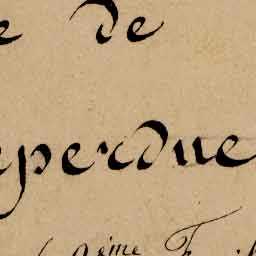 e de
perdue
ème F